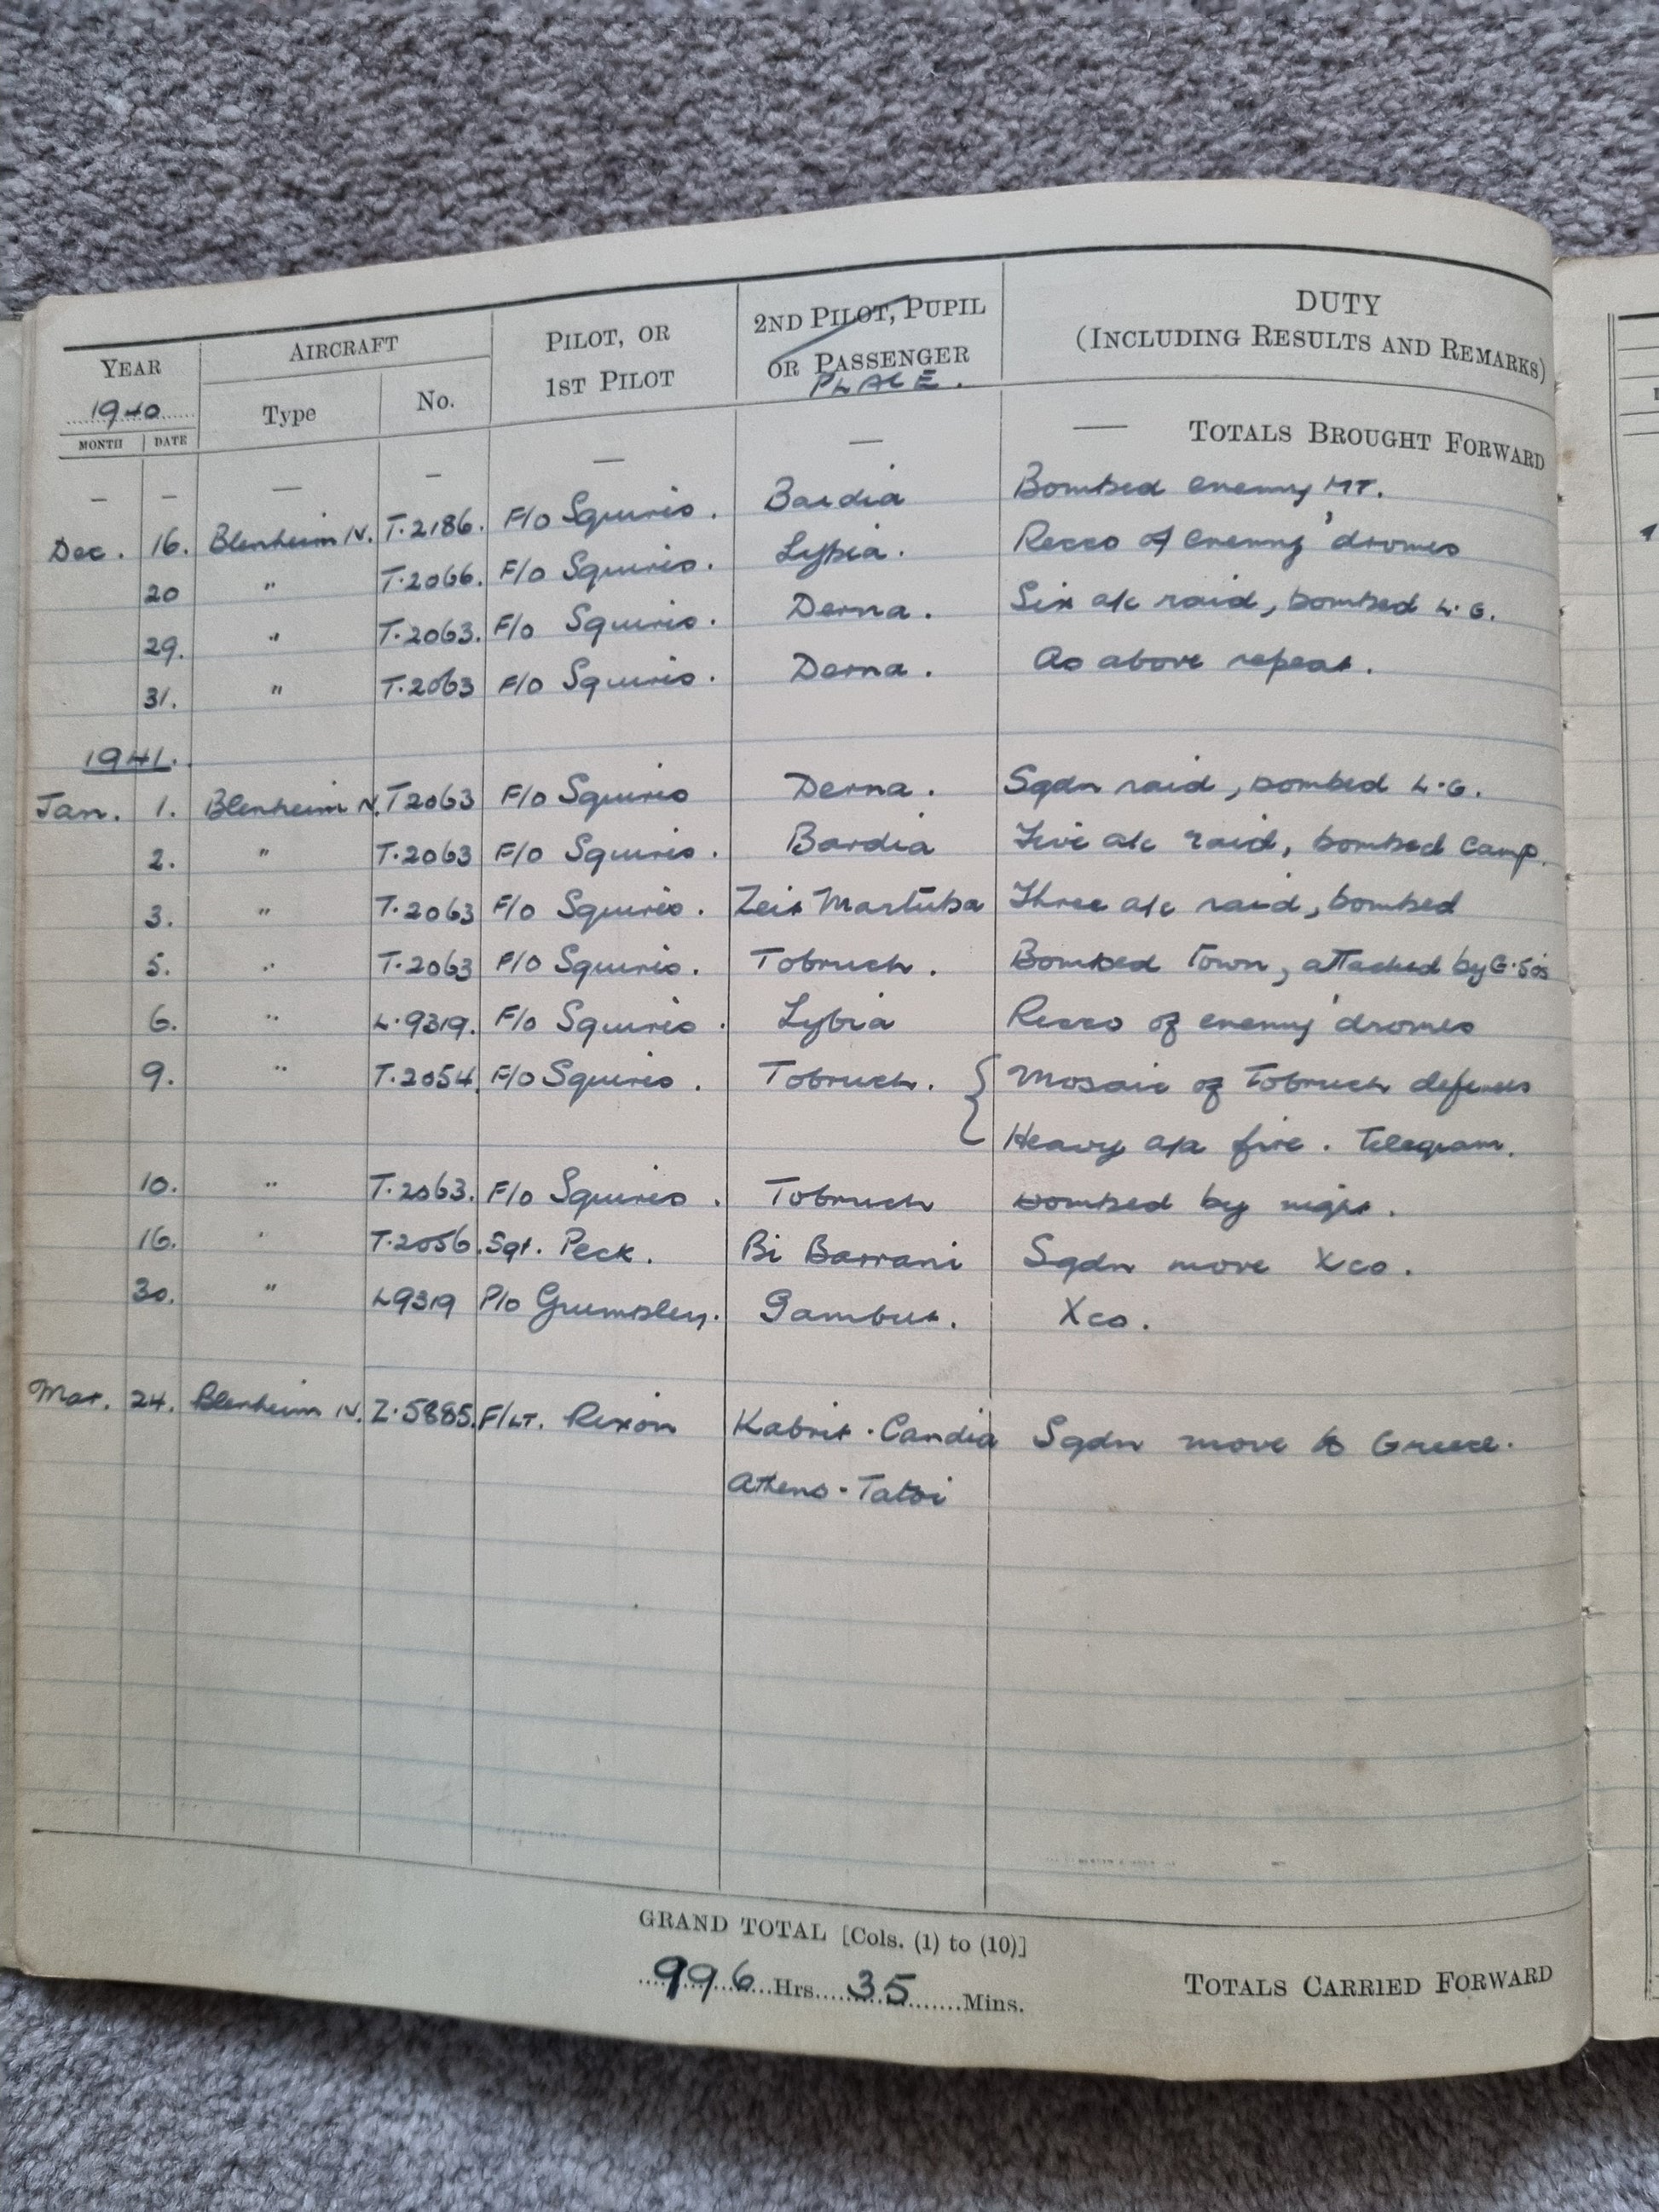 YEAR AIRCRAFT PILOT, OR 2ND PILOT, PUPIL DUTY
1940 Type No. 1ST PILOT OR PASSENGER (INCLUDING RESULTS AND REMARKS)
MONTH DATE PLACE.
— — — — — — — TOTALS BROUGHT FORWARD
Dec. 16. Blenheim IV. T.2186. F/O Squires. Bardia Bombed enemy MT.
20 " T.2066. F/O Squires. Lybia. Recco of enemy 'dromes
29. " T.2063. F/O Squires. Derna. Six a/c raid, bombed L.G.
31. " T.2063 F/O Squires. Derna. As above repeat.
1941.
Jan. 1. Blenheim IV. T2063 F/O Squires Derna. Sqdn raid, bombed L.G.
2. " T.2063 F/O Squires. Bardia Five a/c raid, bombed camp.
3. " T.2063 F/O Squires. Martuba Three a/c raid, bombed
5. " T.2063 F/O Squires. Tobruch. Bombed Town, attacked by G.50s
6. " L.9319. F/O Squires. Lybia Recco of enemy 'dromes
9. " T.2054. F/O Squires. Tobruch. { Mosaic of Tobruch defences
Heavy a/a fire. Telegram.
10. " T.2063. F/O Squires. Tobruch Bombed by night.
16. " T.2056. Sgt. Peck. Bi Barrani Sqdn move Xco.
30. " L9319 P/O Gambut. Xco.
Mar. 24. Blenheim IV. Z.5885. F/LT. Rixon Kabrit - Candia Sqdn move to Greece.
Athens - Tatoi
GRAND TOTAL [Cols. (1) to (10)]
996 Hrs. 35 Mins. TOTALS CARRIED FORWARD